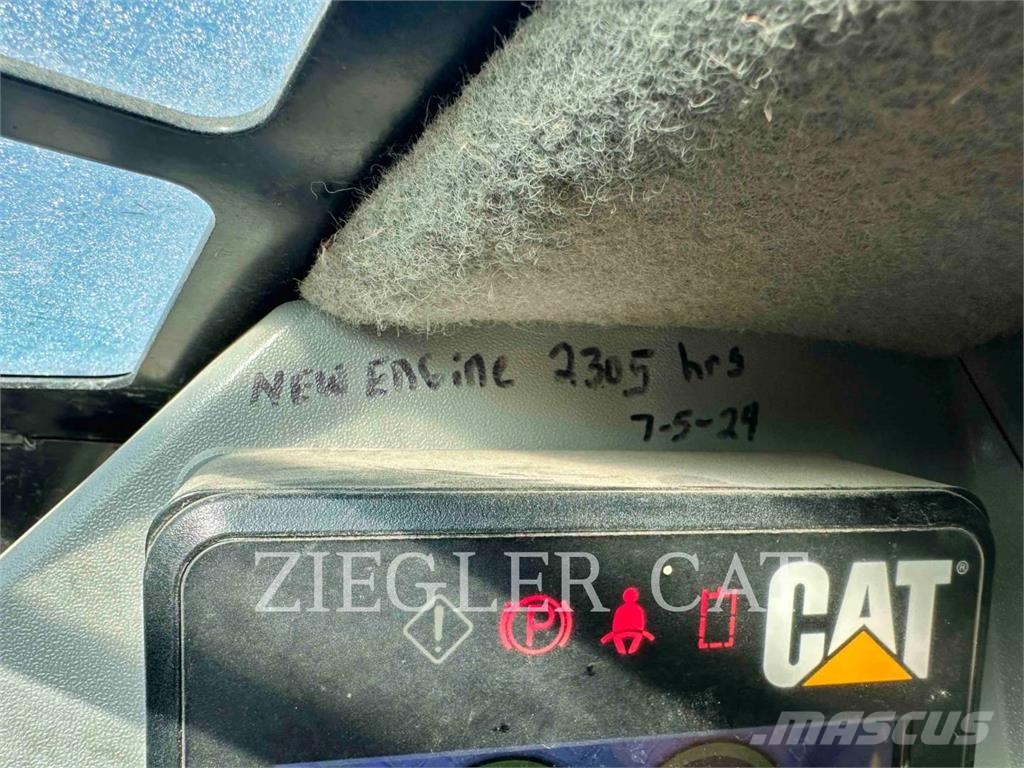 NEW ENGine 2305 hrs
7-5-24
ZIEGLER CAT
! P CAT®
MASCUS